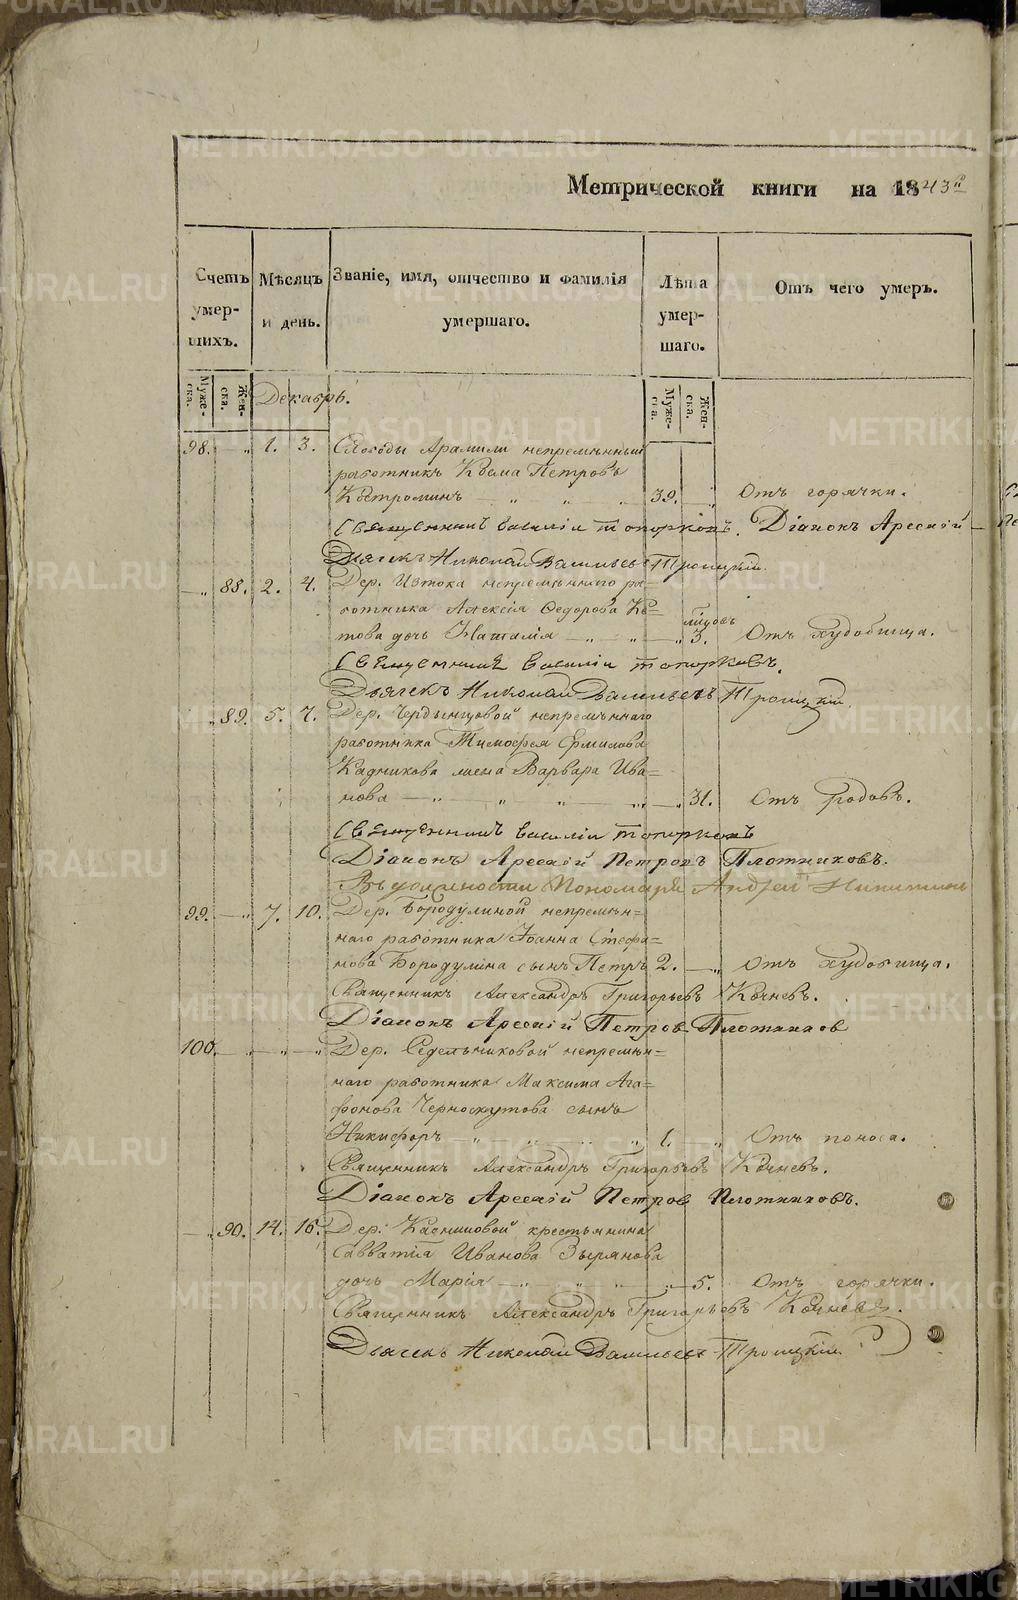 Метрической книги на 1843й
Счетъ умершихъ. Мѣсяцъ и день. Званіе, имя, отчество и фамилія умершаго. Лѣта умершаго. Отъ чего умеръ.
Мужеска. Женска. Декабрь. Мужеска. Женска.
98. — „ 1. 3. Слободы Арамили непремѣнный
работникъ Козма Петровъ
Костроминъ — „ „ „ 39. „ Отъ горячки.
Священникъ Василій Топорковъ. Діаконъ Арсеній
Дьячекъ Николай Васильевъ Троицкій.
— „ 88. 2. 4. Дер. Истока непремѣннаго ра-
ботника Алексія Федорова Ке-
това дочь Наталія — „ „ — „ 3. Отъ худобища.
Священникъ Василій Топорковъ.
Дьячекъ Николай Васильевъ Троицкій
„ 89. 5. 7. Дер. Чердынцовой непремѣннаго
работника Тимофея Ермилова
Кадникова жена Варвара Ива=
нова — „ — „ „ „ — „ 31. Отъ родовъ.
Священникъ Василій Топорковъ
Діаконъ Арсеній Петровъ Плотниковъ.
Въ должности Пономаря Андрей Никитинъ
99. — „ 7. 10. Дер. Бородулиной непремѣн=
наго работника Іоанна Стефа=
нова Бородулина сынъ Петръ 2. — „ Отъ худобища.
Священникъ Александръ Григорьевъ Кочневъ.
Діаконъ Арсеній Петров Плотников
100. — „ — „ — „ Дер. Седельниковой непремѣн=
наго работника Максима Ага=
фонова Черноскутова сынъ
Никифоръ „ „ „ „ 1. „ Отъ поноса.
Священникъ Александръ Григорьевъ Кочневъ.
Діаконъ Арсеній Петров Плотниковъ.
— „ 90. 14. 16. Дер. крестьянина
Савватія Иванова Зырянова
дочь Марія — „ — „ „ „ — 5. Отъ горячки.
Священникъ Александръ Григорьевъ Кочневъ.
Дьячекъ Николай Васильевъ Троицкій
METRIKI.GASO-URAL.RU